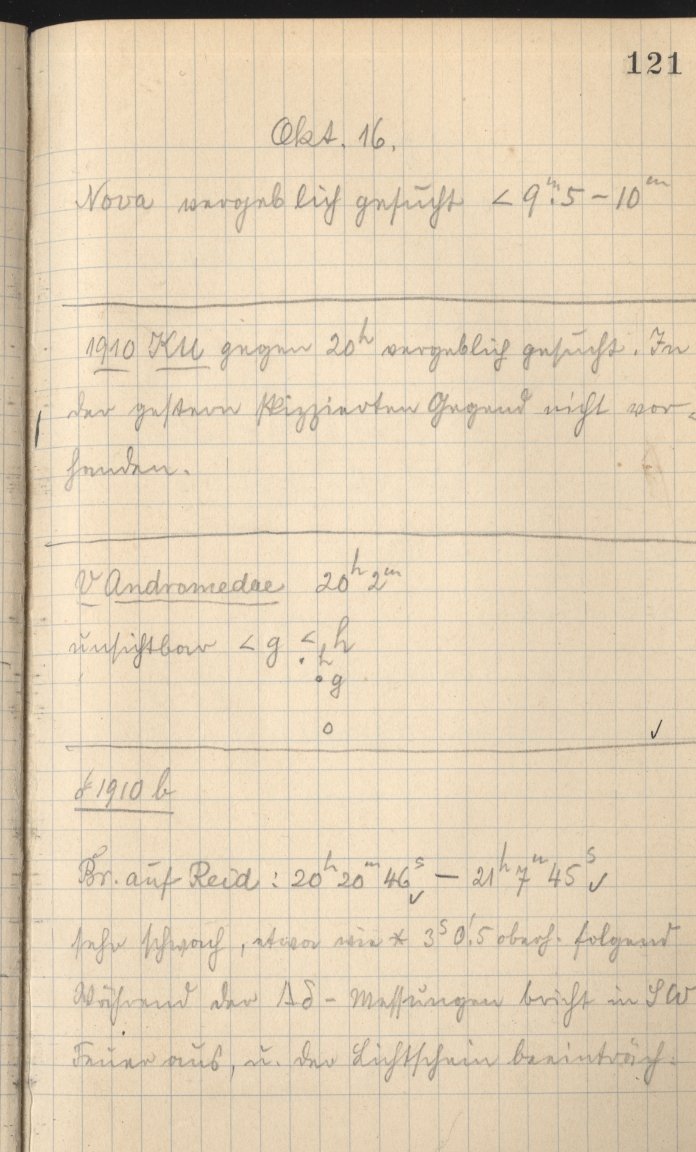 121
Okt. 16.
Nova vergeblich gesucht < 9ᵐ.5 – 10ᵐ
1910 KU gegen 20ʰ vergeblich gesucht. In
der gestern skizzierten Gegend nicht vor-
handen.
V Andromedae 20ʰ 2ᵐ
unsichtbar < g < h
h
g
☄ 1910 b
Br. auf Reid : 20ʰ 20ᵐ 46ˢ – 21ʰ 7ᵐ 45ˢ
sehr schwach, etwa wie * 3ˢ 0'.5 oberh. folgend
Während der Δδ - Messungen bricht in SW
Feuer aus, u. der Lichtschein beeinträch-